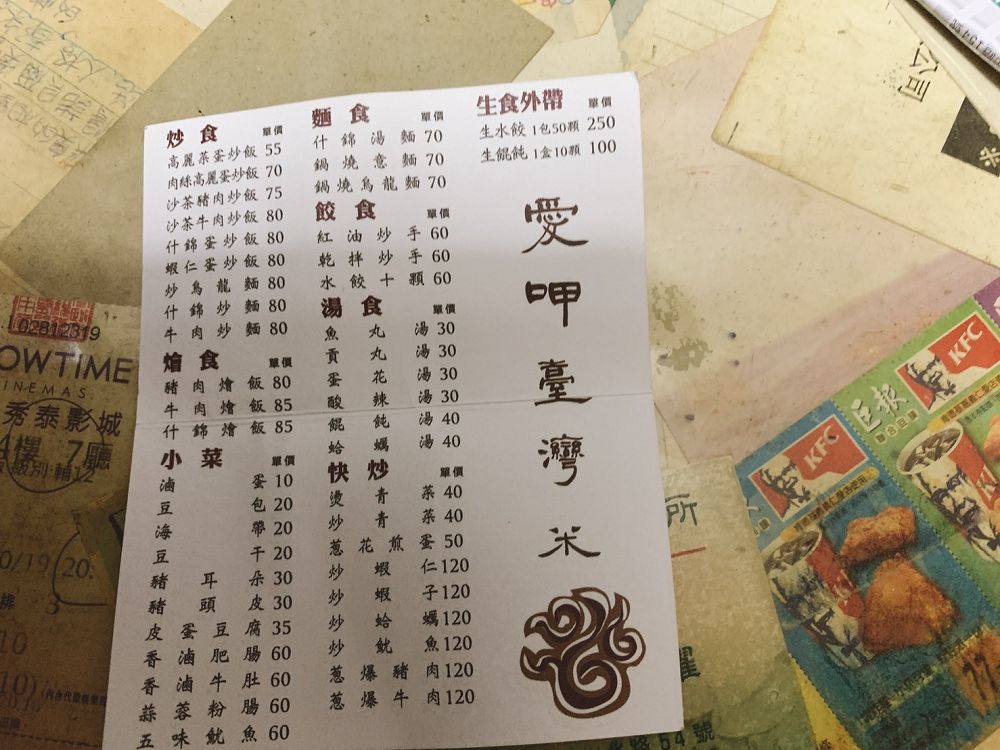 炒食 單價
高麗菜蛋炒飯 55
肉絲高麗蛋炒飯 70
沙茶豬肉炒飯 75
沙茶牛肉炒飯 80
什錦蛋炒飯 80
蝦仁蛋炒飯 80
炒烏龍麵 80
什錦炒麵 80
牛肉炒麵 80
燴食 單價
豬肉燴飯 80
牛肉燴飯 85
什錦燴飯 85
小菜 單價
滷蛋 10
豆包 20
海帶 20
豆干 20
豬耳朵 30
豬頭皮 30
皮蛋豆腐 35
香滷肥腸 60
香滷牛肚 60
蒜蓉粉腸 60
五味魷魚 60
麵食 單價
什錦湯麵 70
鍋燒意麵 70
鍋燒烏龍麵 70
餃食 單價
紅油炒手 60
乾拌炒手 60
水餃十顆 60
湯食 單價
魚丸湯 30
貢丸湯 30
蛋花湯 30
酸辣湯 30
餛飩湯 40
蛤蠣湯 40
快炒 單價
燙青菜 40
炒青菜 40
蔥花煎蛋 50
炒蝦仁 120
炒蝦子 120
炒蛤蠣 120
炒魷魚 120
蔥爆豬肉 120
蔥爆牛肉 120
生食外帶 單價
生水餃 1包50顆 250
生餛飩 1盒10顆 100
愛呷臺灣米
02812319
OWTIME
INEMAS
秀泰影城
7廳
司公
KFC
KFC
所
64號